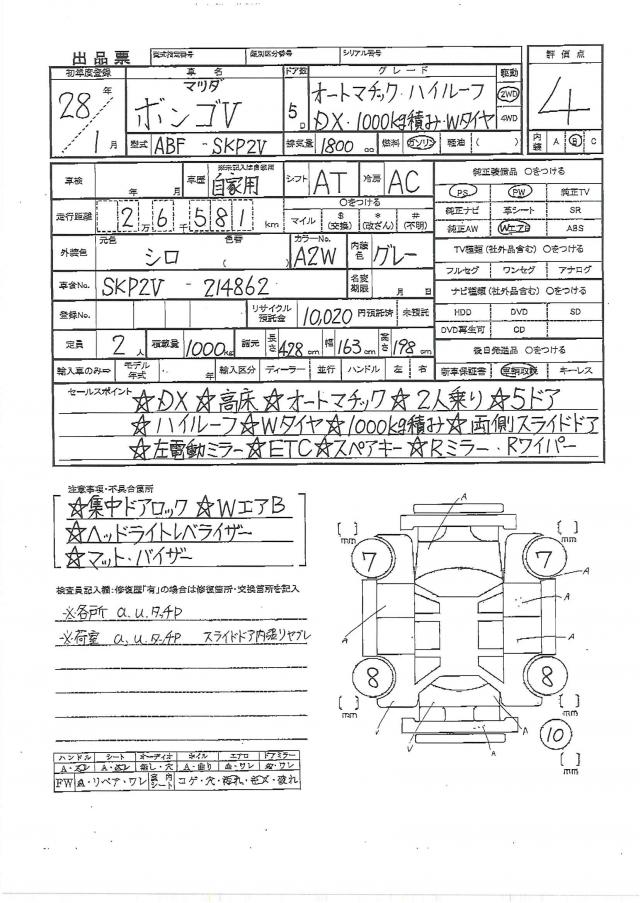 出品票 型式指定番号 類別区分番号 シリアル番号 評価点
初年度登録 車名 ドア数 グレード 駆動
28年 マツダ ボンゴV 5D オートマチック・ハイルーフ 2WD 4
1月 DX・1000kg積み・Wタイヤ 4WD
型式 ABF - SKP2V 排気量 1800 cc 燃料 ガソリン 軽油 ( ) 内装 A B C
車検 年 月 車歴 ※未記入は自家用 自家用 シフト AT 冷房 AC 純正装備品 〇をつける
PS PW 純正TV
走行距離 2万6581km 〇をつける マイル $(交換) *(改ざん) #(不明) 純正ナビ 革シート SR
純正AW WエアB ABS
外装色 元色 シロ 色替 ( ) カラーNo. A2W 内装色 グレー TV種類(社外品含む)〇をつける
フルセグ ワンセグ アナログ
車台No. SKP2V - 214862 名変期限 月 日 ナビ種類(社外品含む)〇をつける
登録No. リサイクル預託金 10,020 円預託済 未預託 HDD DVD SD
DVD再生可 CD
定員 2人 積載量 1000kg 諸元 長さ 428cm 幅 163cm 高さ 198cm 後日発送品 〇をつける
輸入車のみ⇒ モデル年式 年 輸入区分 ディーラー 並行 ハンドル 左 右 新車保証書 キーレス
セールスポイント ☆DX☆高床☆オートマチック☆2人乗り☆5ドア
☆ハイルーフ☆Wタイヤ☆1000kg積み☆両側スライドドア
☆左電動ミラー☆ETC☆スペアキー☆Rミラー・Rワイパー
注意事項・不具合箇所
☆集中ドアロック☆WエアB
☆ヘッドライトレベライザー
☆マット・バイザー
検査員記入欄:修復歴「有」の場合は修復箇所・交換箇所を記入
※各所 a.u.タッチP
※荷室 a.u.タッチP スライドドア内張リヤブレ
A
[ ] mm [ ] mm
7 A A 7
A
A
A
8 8
[ ] mm [ ] mm
A A
10
[ ] mm
ハンドル シート オーディオ ホイル エアロ ドアミラー
無し・穴
FW A・リペア・ワレ 室内シート コゲ・穴・汚れ・キズ・破れ